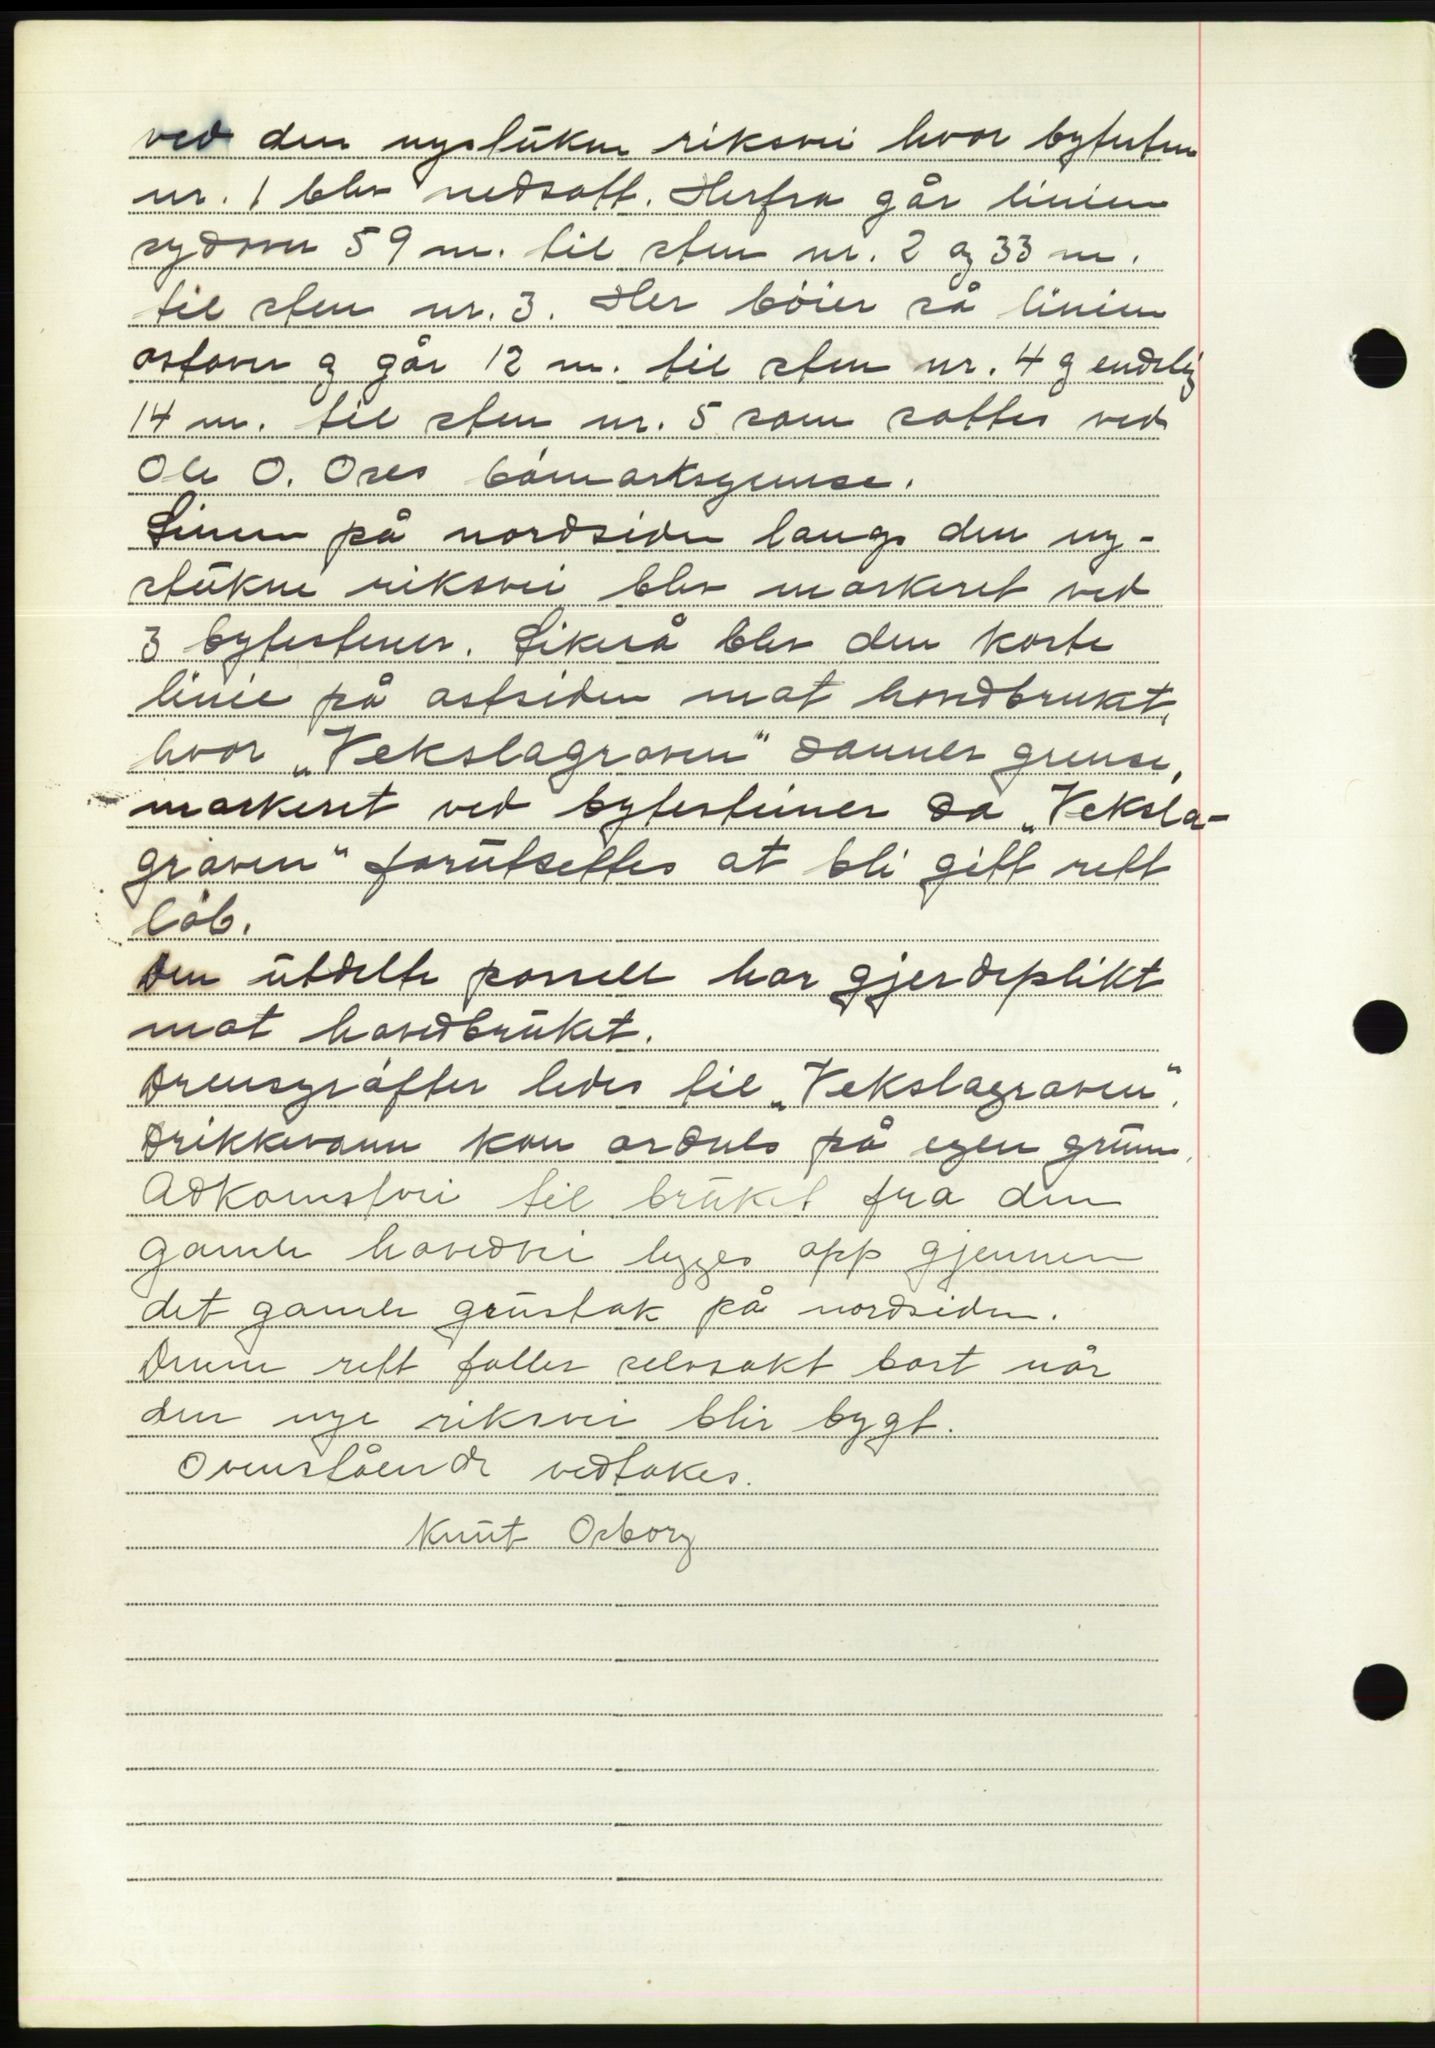 ved den nystukne riksvei hvor bytesten
nr. 1 blev nedsatt. Herfra går linien
sydover 59 m. til sten nr. 2 og 33 m.
til sten nr. 3. Her böier så linien
ostover og går 12 m. til sten nr. 4 og endelig
14 m. til sten nr. 5 som sattes ved
Ole O. Oses bömarksgrense.
Linien på nordsiden langs den ny-
stukne riksvei blev markeret ved
3 bytestener. Likeså blev den korte
linie på ostsiden mot hovedbruket,
hvor "Vekslagraven" danner grense,
markeret ved bytesteiner da "Veksla-
graven" forutsettes at bli gitt rett
löb.
Den utdelte parsell har gjerdeplikt
mot hovedbruket.
Drensgröfter ledes til "Vekslagraven".
Drikkevann kan ordnes på egen grunn.
Adkomstvei til bruket fra den
gamle hovedvei legges opp gjennem
det gamle grustak på nordsiden.
Denne rett faller selvsakt bort når
den nye riksvei blir bygt.
Ovenstående vedtakes.
Knut Osborg